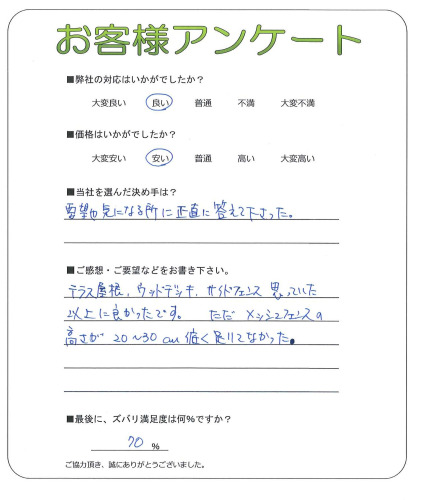 お客様アンケート
■弊社の対応はいかがでしたか？
大変良い 良い 普通 不満 大変不満
■価格はいかがでしたか？
大変安い 安い 普通 高い 大変高い
■当社を選んだ決め手は？
要望や気になる所に正直に答えて下さった。
■ご感想・ご要望などをお書き下さい。
テラス屋根、ウッドデッキ、サイドフェンス 思っていた
以上に良かったです。 ただ メッシュフェンスの
高さが 20〜30cm 低く足りてなかった。
■最後に、ズバリ満足度は何%ですか？
70 %
ご協力頂き、誠にありがとうございました。